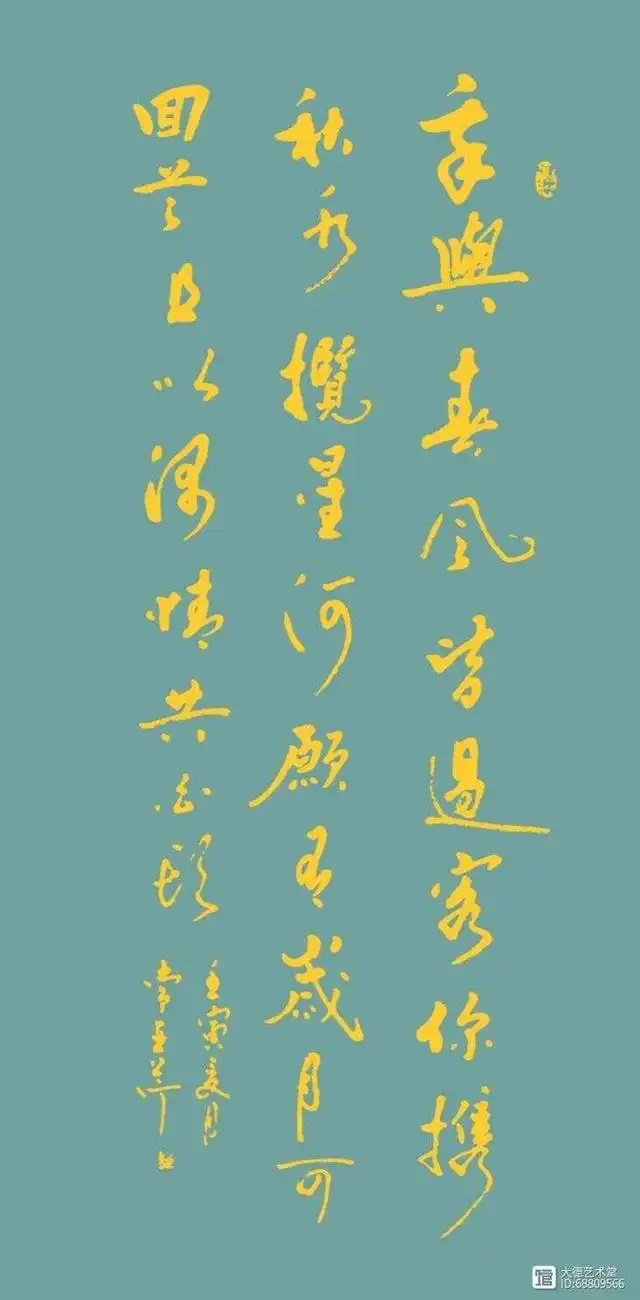 與春風皆過客你攜
秋水攬星河願有歲月可
回首且以深情共白頭
壬寅夏月
大德艺术堂
ID:68809566